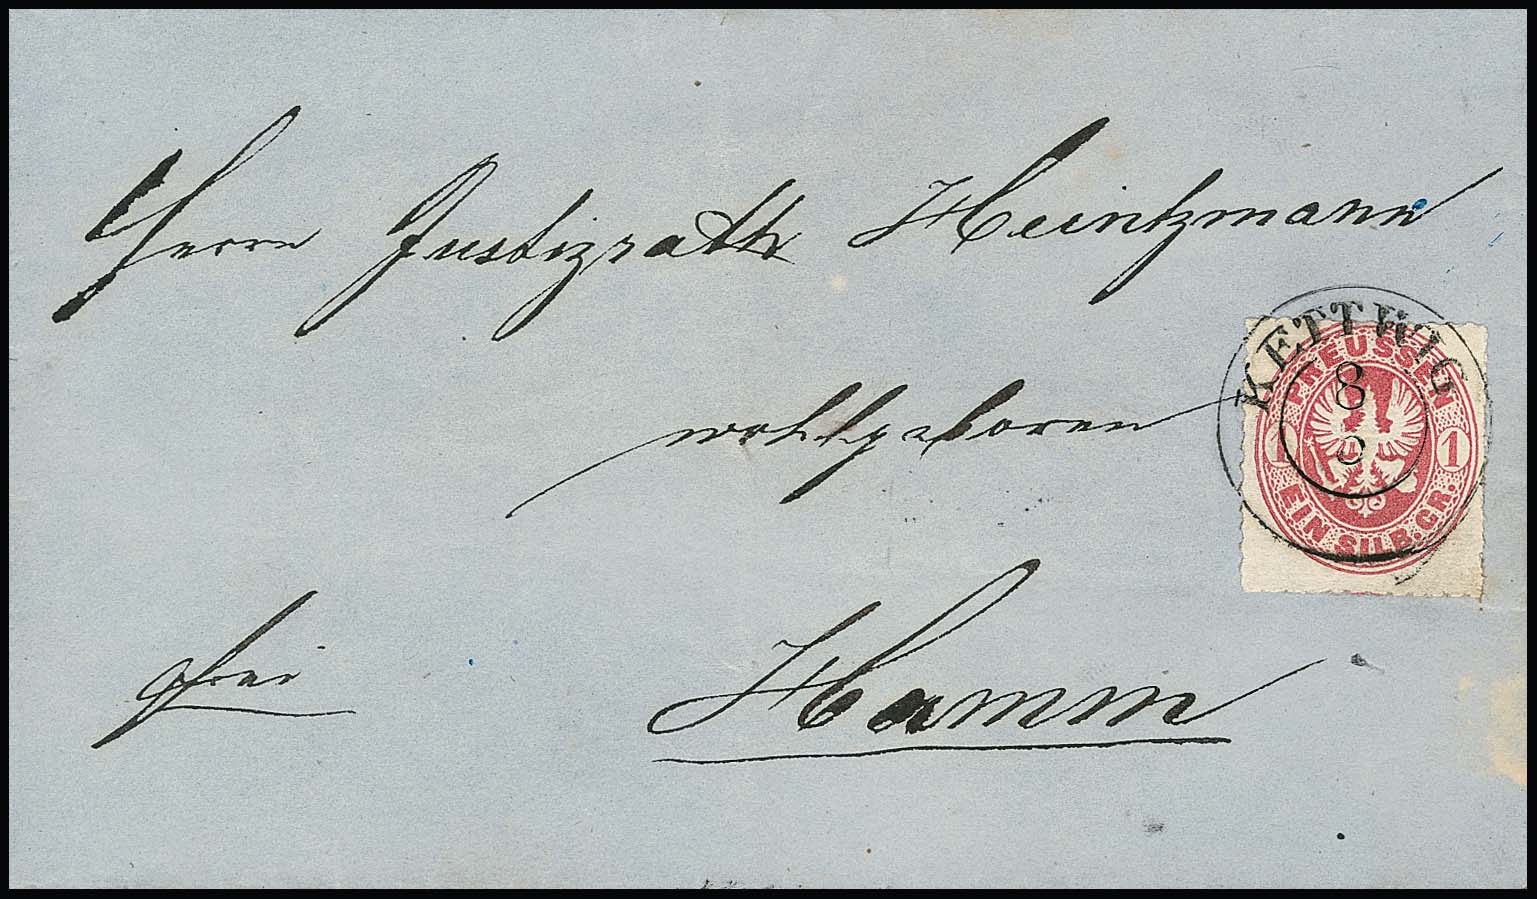 Herrn Justizrath Heintzmann
wohlgeboren
frei
Hamm
KETTWIG
8
PREUSSEN
1 1
EIN SILB. GR.